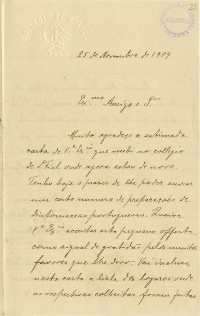 25 de Novembro de 1909
Ex.mo Amigo e Sr.
Muito agradeço a estimada
carta de V. Ex.cia que recebi no collegio
de S. Fiel onde agora estou de novo.
Tenho hoje o prazer de lhe poder enviar
um certo numero de preparações de
diatomaceas portuguezas. Queira
V. Ex.cia acceitar esta pequena offerta
como signal de gratidão pelos muitos
favores que lhe devo. Vae inclusa
nesta carta a lista dos logares onde
as respectivas colheitas foram feitas